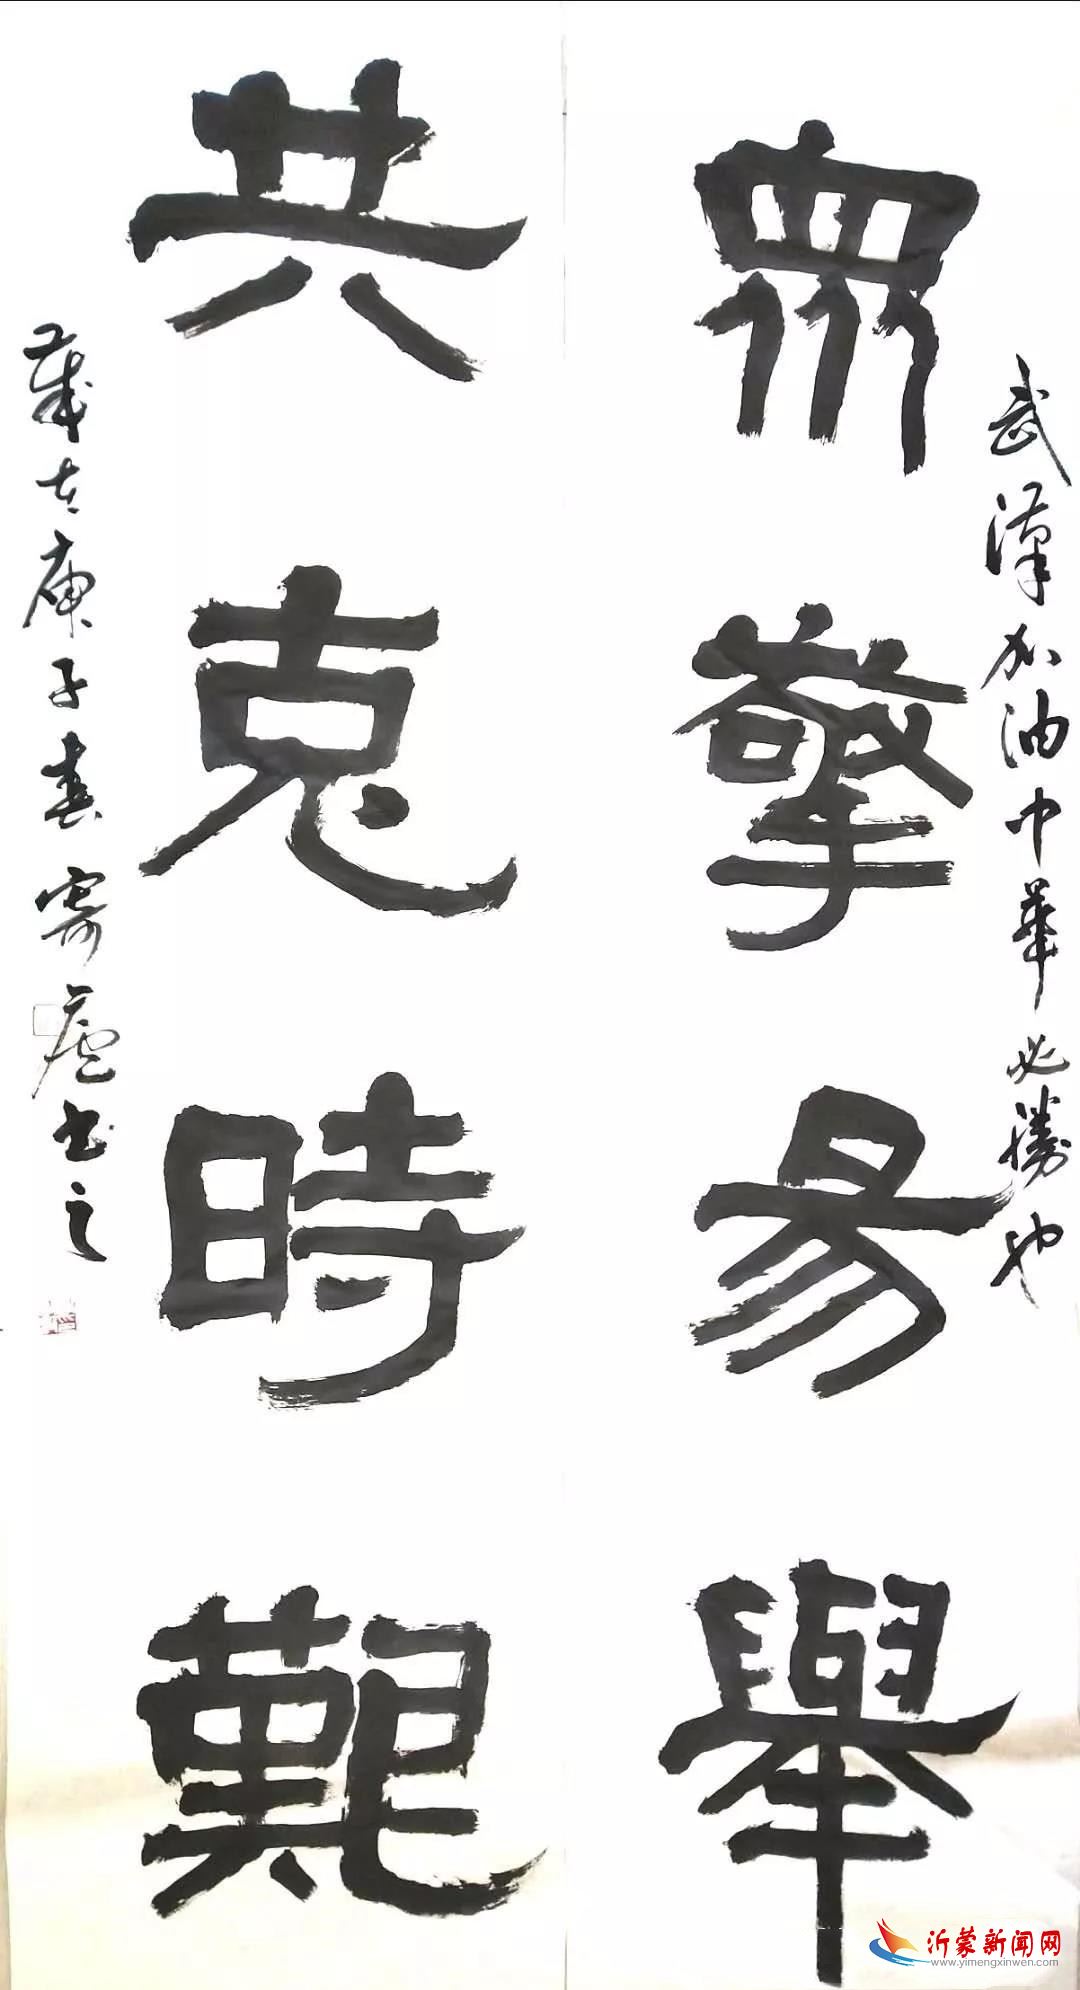 武漢加油中華必勝也
眾擎易舉
共克時艱
歲在庚子春寄廬書之
沂蒙新闻网
www.yimengxinwen.com